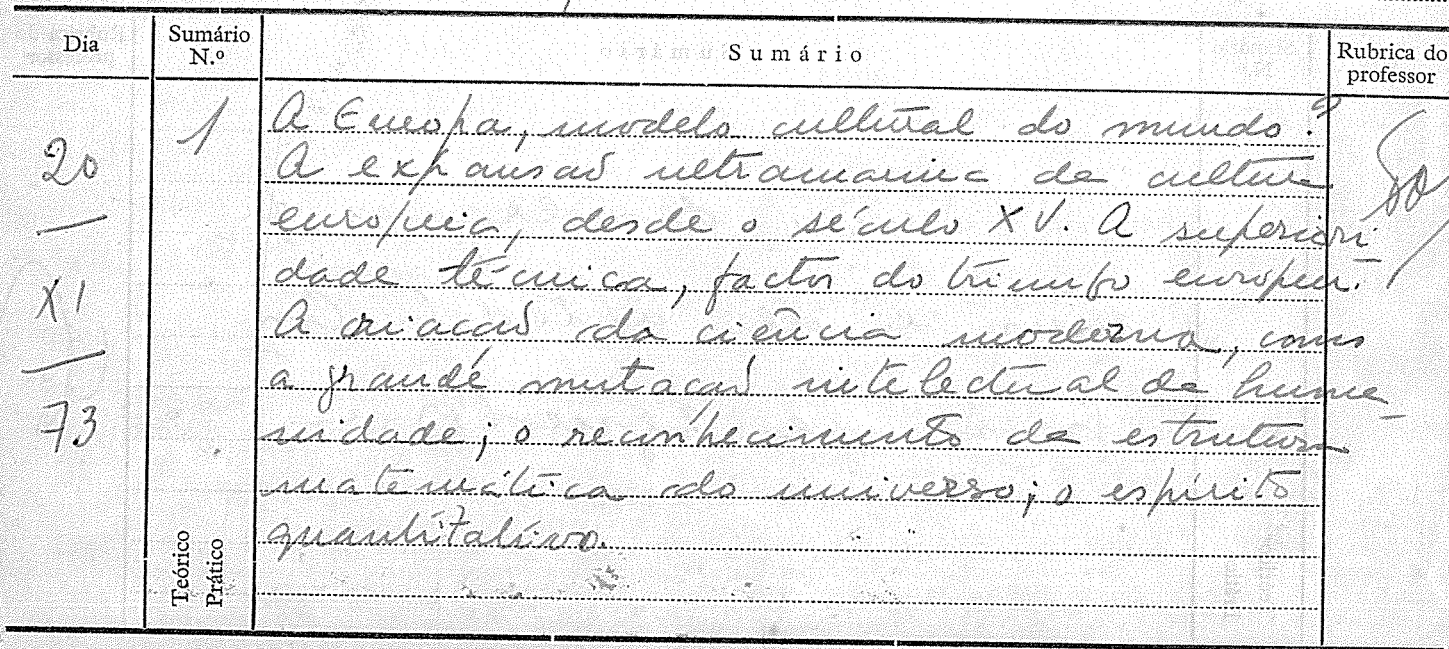 Dia
Sumário N.º
Sumário
Rubrica do professor
20
—
XI
—
73
1
A Europa, modelo cultural do mundo?
A expansão ultramarina da cultura
europeia, desde o século XV. A superiori
dade técnica, factor do triunfo europeu.
A criação da ciência moderna, como
a grande mutação intelectual da huma_
nidade; o reconhecimento da estrutura
matemática do universo; o espírito
quantitativo.
Teórico
Prático